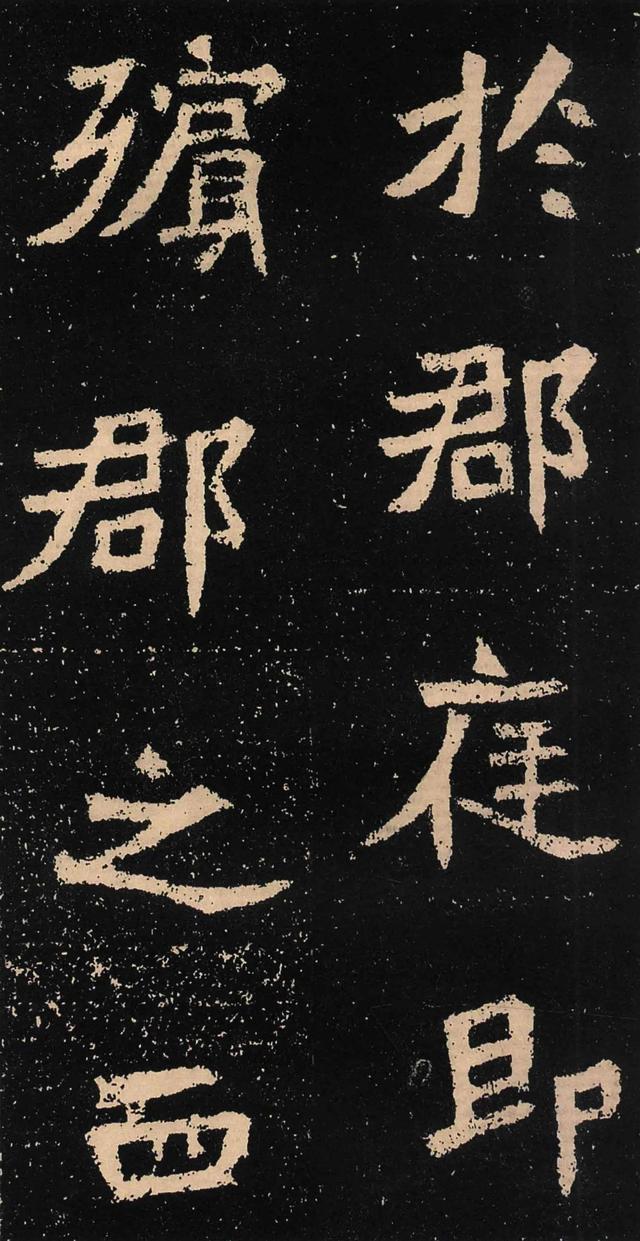 於郡庭即
殯郡之西